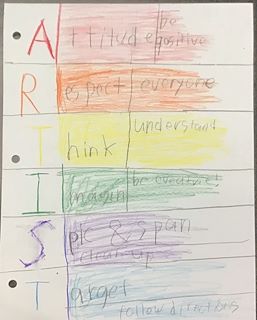 Attitude be positive
Respect everyone
Think understand
Imagin be creative!
Spic & Span
clean-up
Target
follow directions